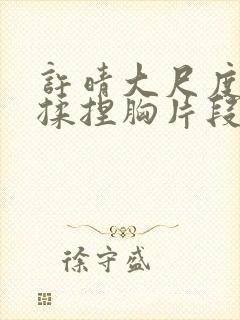 許晴大尺度
揉捏胸片段
徐守盛